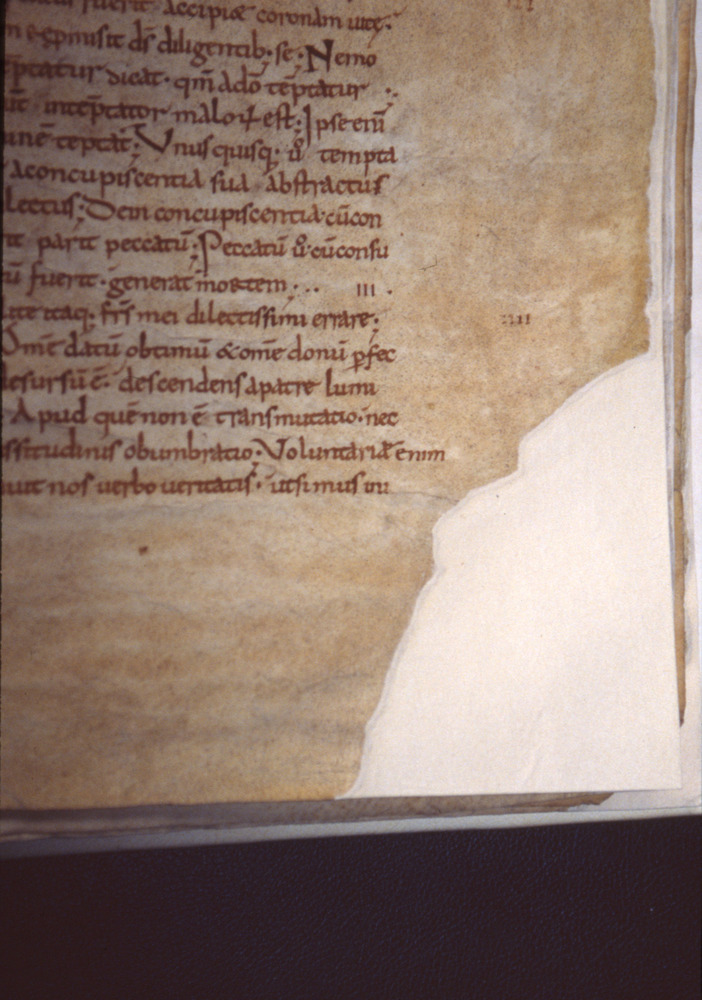 fuerit accipiæ coronam uitę·
repmisit dſ diligentib; se· Nemo
teptatur dicat· qm̄ adō tēptatur
intēptator maloꝝ est; Ipse enī
neminē teptat; Vnusquisq; ū tempta
aconcupiscentia sua abstractus
llectus; Dein concupiscentia· cūcon
parit peccatū; Peccatū ū· cūconsu
fuerit· generat mortem ;.. III ·
itaq; frs̄ mei dilectissimi errare;
IIII
Omē datū obtimū &omē donū ꝑfec
desursū ē· descendens apatre lumi
Apud quē non ē transmutatio· nec
ssitudinis obumbratio· Voluntariæ enim
nos uerbo ueritatis· utsimus ini